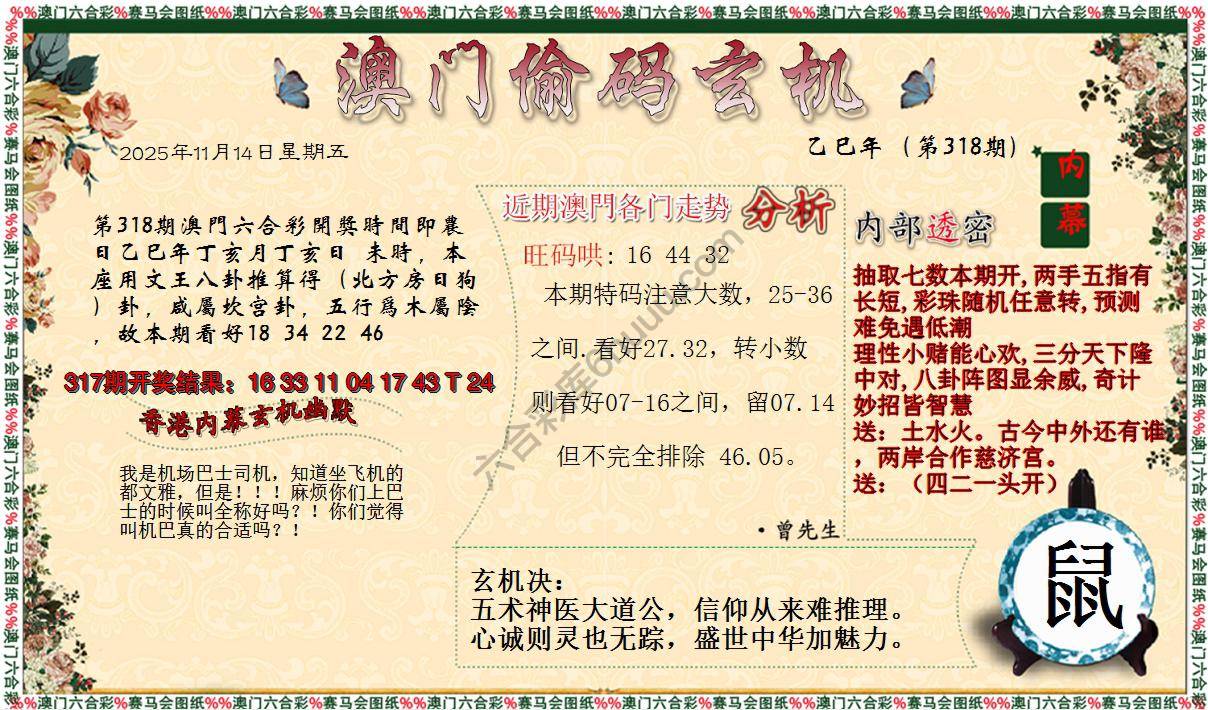 %%澳门六合彩%赛马会图纸%%澳门六合彩%赛马会图纸%%澳门六合彩%赛马会图纸%%澳门六合彩%赛马会图纸%%澳门六合彩%赛马会图纸%%澳门六合彩%赛马会图纸%%
澳门偷码玄机
2025年11月14日星期五
乙巳年（第318期）
内
幕
第318期澳門六合彩開獎時間即農
日乙巳年丁亥月丁亥日 未時，本
座用文王八卦推算得（北方房日狗
）卦，咸屬坎宫卦，五行爲木屬陰
，故本期看好18 34 22 46
317期开奖结果：16 33 11 04 17 43 T 24
香港内幕玄机幽默
我是机场巴士司机，知道坐飞机的
都文雅，但是！！！麻烦你们上巴
士的时候叫全称好吗？！你们觉得
叫机巴真的合适吗？！
近期澳門各门走势 分析
旺码哄: 16 44 32
本期特码注意大数，25-36
之间.看好27.32，转小数
则看好07-16之间，留07.14
但不完全排除 46.05。
·曾先生
内部透密
抽取七数本期开,两手五指有
长短,彩珠随机任意转,预测
难免遇低潮
理性小赌能心欢,三分天下隆
中对,八卦阵图显余威,奇计
妙招皆智慧
送：土水火。古今中外还有谁
，两岸合作慈济宫。
送：（四二一头开）
玄机决：
五术神医大道公，信仰从来难推理。
心诚则灵也无踪，盛世中华加魅力。
鼠
%%澳门六合彩%赛马会图纸%%澳门六合彩%赛马会图纸%%澳门六合彩%赛马会图纸%%澳门六合彩%赛马会图纸%%澳门六合彩%赛马会图纸%%澳门六合彩%赛马会图纸%%